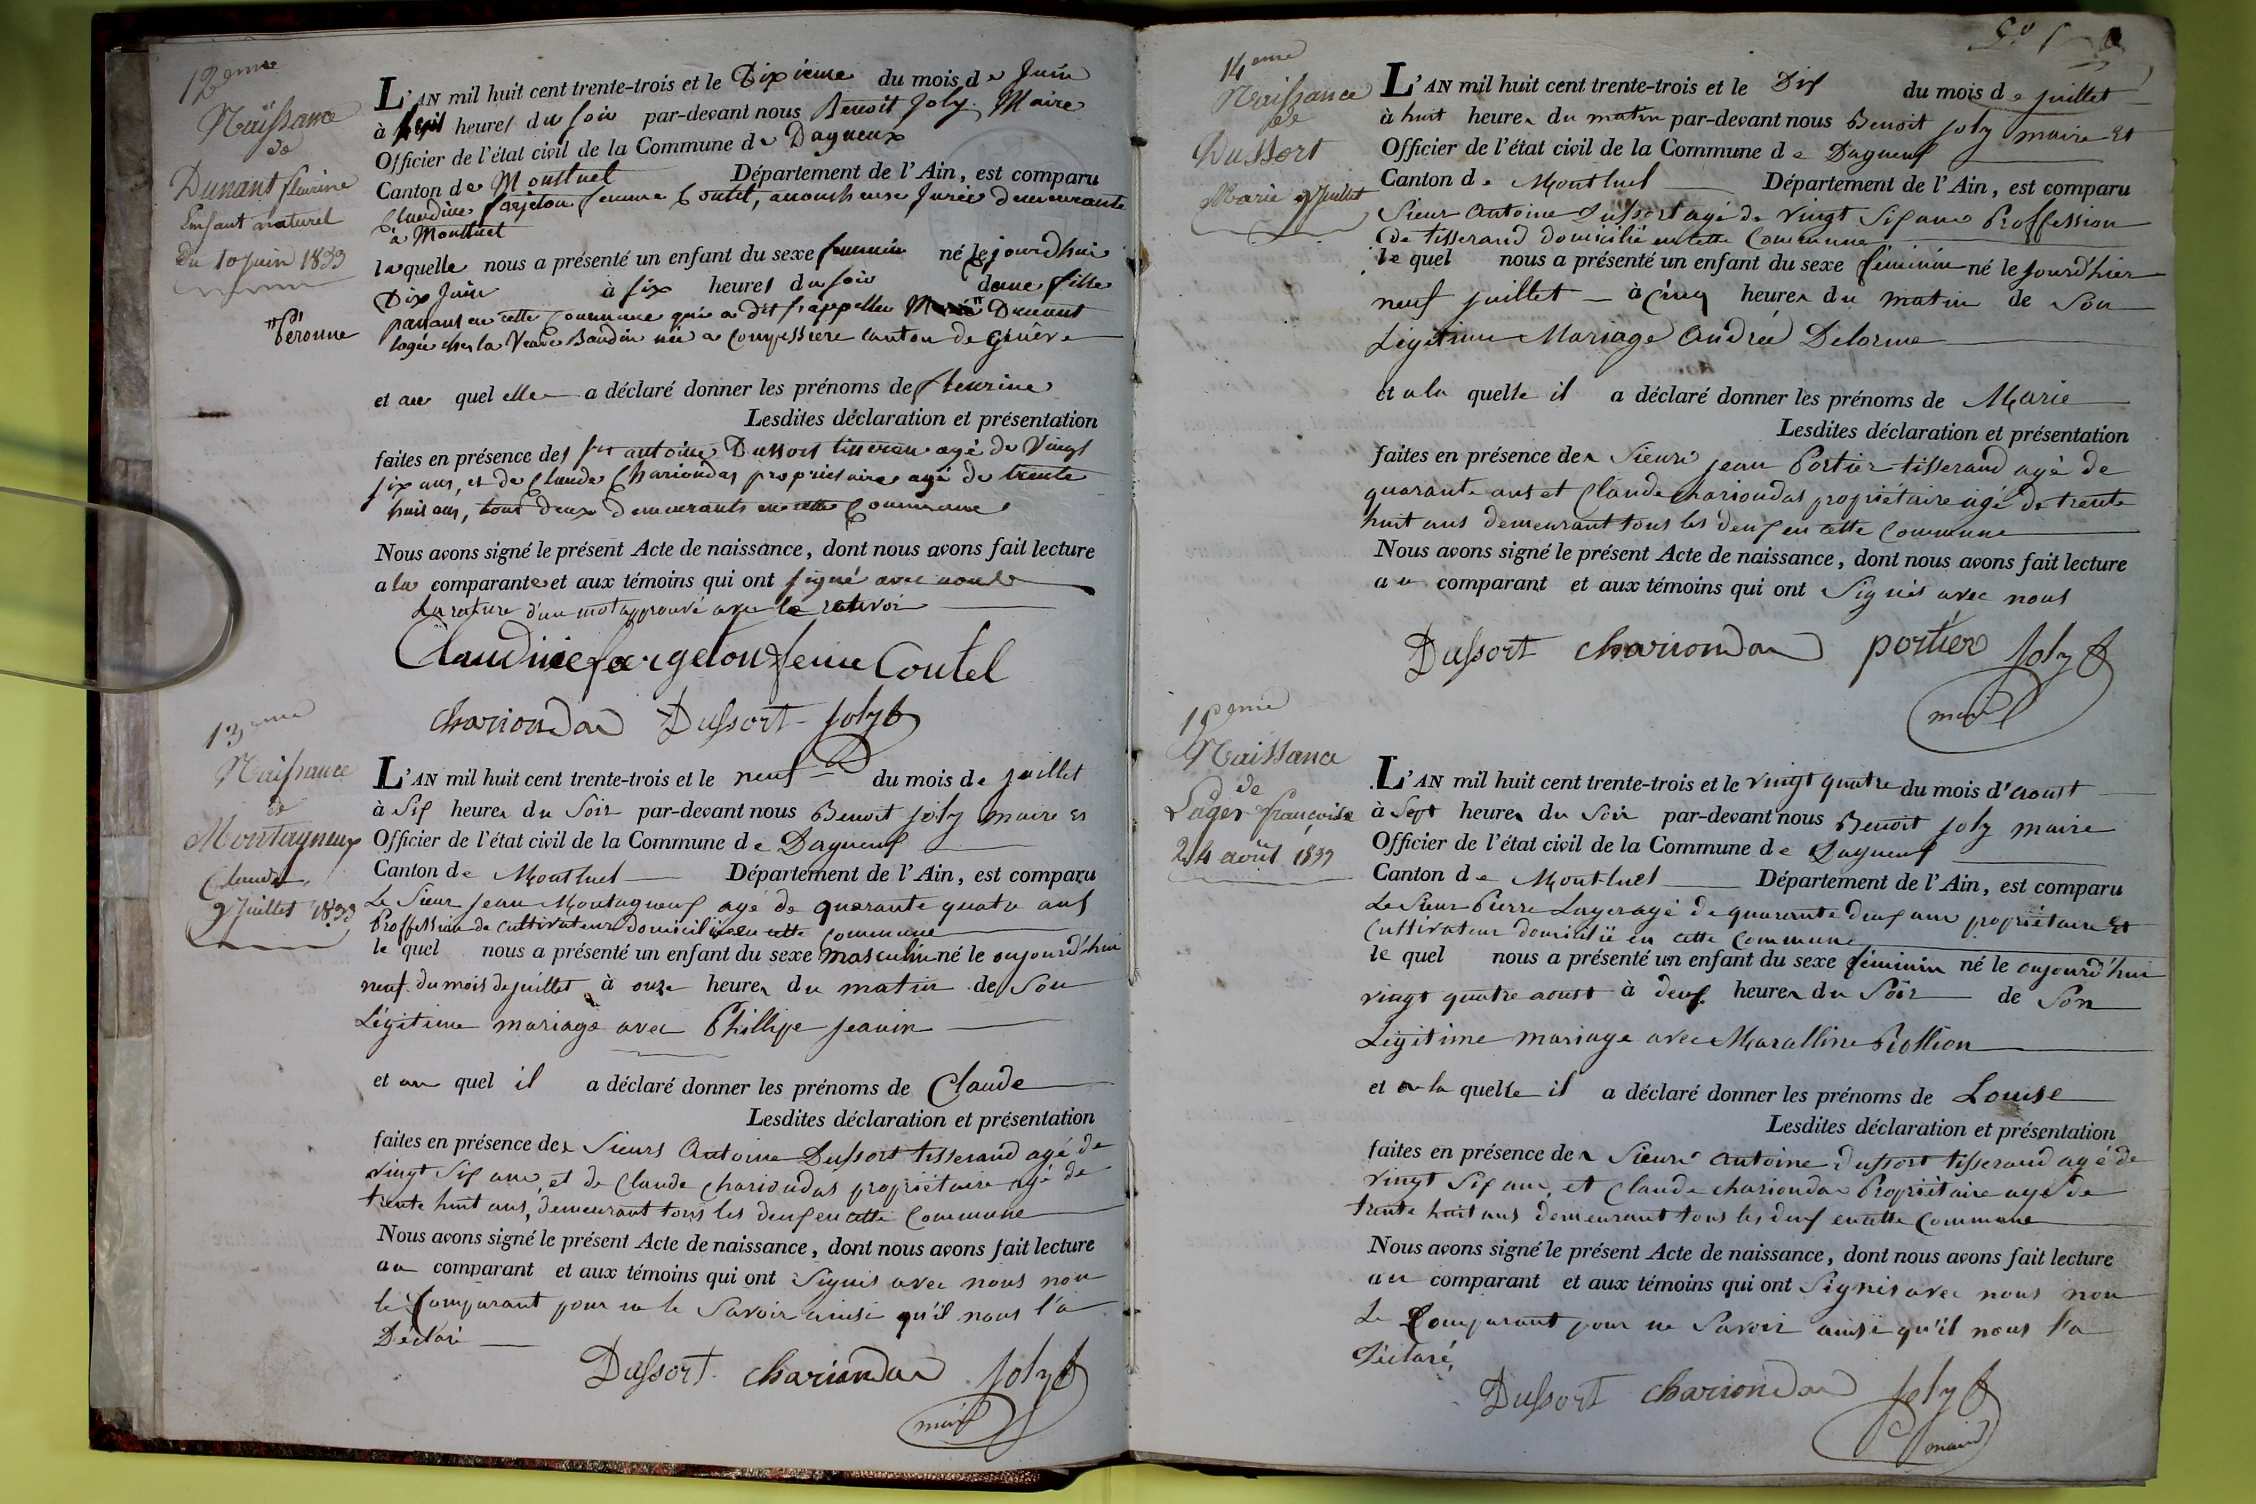 12eme
Naissance
de
Dunant fleurine
Enfant naturel
du 10 juin 1833
"Péronne
L'AN mil huit cent trente-trois et le Dixieme du mois de Juin
à huit heures du soir par-devant nous Benoit Joly Maire
Officier de l'état civil de la Commune de Dagneux
Canton de Montluel Département de l'Ain, est comparu
Claudine fargeton femme Coutel, accoucheuse Jurée demeurante
à Montluel
laquelle nous a présenté un enfant du sexe feminin né le jourd'hui
Dix Juin à six heures du soir d'une fille
passant en cette commune qui a dit s'appeller Dunant
logée chez la Veuve Baudin née a Compessiere canton de Genêve
et au quel elle a déclaré donner les prénoms de fleurine
Lesdites déclaration et présentation
faites en présence des srs antoine Dussort tisseran agé de Vingt
six ans, et de Claude Chariondas proprietaire agé de trente
huit ans, tous deux demeurants en cette Commune
Nous avons signé le présent Acte de naissance, dont nous avons fait lecture
a la comparante et aux témoins qui ont signé avec nous
La rature d'un mot approuvé avec le renvoi
Claudine fargeton feme Coutel
chariondas Dussort Joly B
13eme
Naissance
de
Montagneux
Claude
9 Juillet 1833
L'AN mil huit cent trente-trois et le neuf du mois de juillet
à Six heures du Soir par-devant nous Benoit joly maire et
Officier de l'état civil de la Commune de Dagneux
Canton de Montluel Département de l'Ain, est comparu
Le Sieur jean Montagneux agé de quarante quatre ans
Proffession de cultivateur domicilié en cette Commune
le quel nous a présenté un enfant du sexe masculin né le aujourd'hui
neuf du mois de juillet à onze heures du matin de Son
Légitime mariage avec Phillipe Jeanin
et au quel il a déclaré donner les prénoms de Claude
Lesdites déclaration et présentation
faites en présence des Sieurs Antoine Dussort tisserand agé de
vingt Six ans et de Claude chariondas propriétaire agé de
trente huit ans, demeurant tous les deux en cette Commune
Nous avons signé le présent Acte de naissance, dont nous avons fait lecture
au comparant et aux témoins qui ont Signés avec nous non
le Comparant pour ne le Savoir ainsi qu'il nous l'a
Déclaré
Dussort chariondas joly B
maire
14eme
Naissance
de
Dussort
Marie 9 Juillet
L'AN mil huit cent trente-trois et le Dix du mois de juillet
à huit heures du matin par-devant nous Benoit joly maire et
Officier de l'état civil de la Commune de Dagneux
Canton de Montluel Département de l'Ain, est comparu
Sieur Antoine Dussort agé de vingt Six ans Proffession
de tisserand domicilié en cette Commune
le quel nous a présenté un enfant du sexe féminin né le jourd'hier
neuf juillet à cinq heures du matin de Son
Légitime Mariage Andrée Delorme
et a la quelle il a déclaré donner les prénoms de Marie
Lesdites déclaration et présentation
faites en présence des Sieurs jean Portier tisserand agé de
quarante ans et Claude chariondas propriétaire agé de trente
huit ans demeurant tous les deux en cette Commune
Nous avons signé le présent Acte de naissance, dont nous avons fait lecture
au comparant et aux témoins qui ont Signés avec nous
Dussort chariondas portier joly B
maire
15eme
Naissance
de
Lager françoise
24 août 1833
L'AN mil huit cent trente-trois et le vingt quatre du mois d'aoust
à Sept heures du Soir par-devant nous Benoit joly maire
Officier de l'état civil de la Commune de Dagneux
Canton de Montluel Département de l'Ain, est comparu
Le Sieur Pierre Lager agé de quarante deux ans propriétaire et
Cultivateur domicilié en cette Commune
le quel nous a présenté un enfant du sexe féminin né le aujourd'hui
vingt quatre aoust à deux heures du Soir de Son
Légitime mariage avec Marcelline Prollion
et a la quelle il a déclaré donner les prénoms de Louise
Lesdites déclaration et présentation
faites en présence des Sieurs Antoine Dussort tisserand agé de
vingt Six ans, et Claude chariondas Propriétaire agé de
trente huit ans demeurant tous les deux en cette Commune
Nous avons signé le présent Acte de naissance, dont nous avons fait lecture
au comparant et aux témoins qui ont Signés avec nous non
Le Comparant pour ne Savoir ainsi qu'il nous l'a
Déclaré,
Dussort chariondas joly B
maire